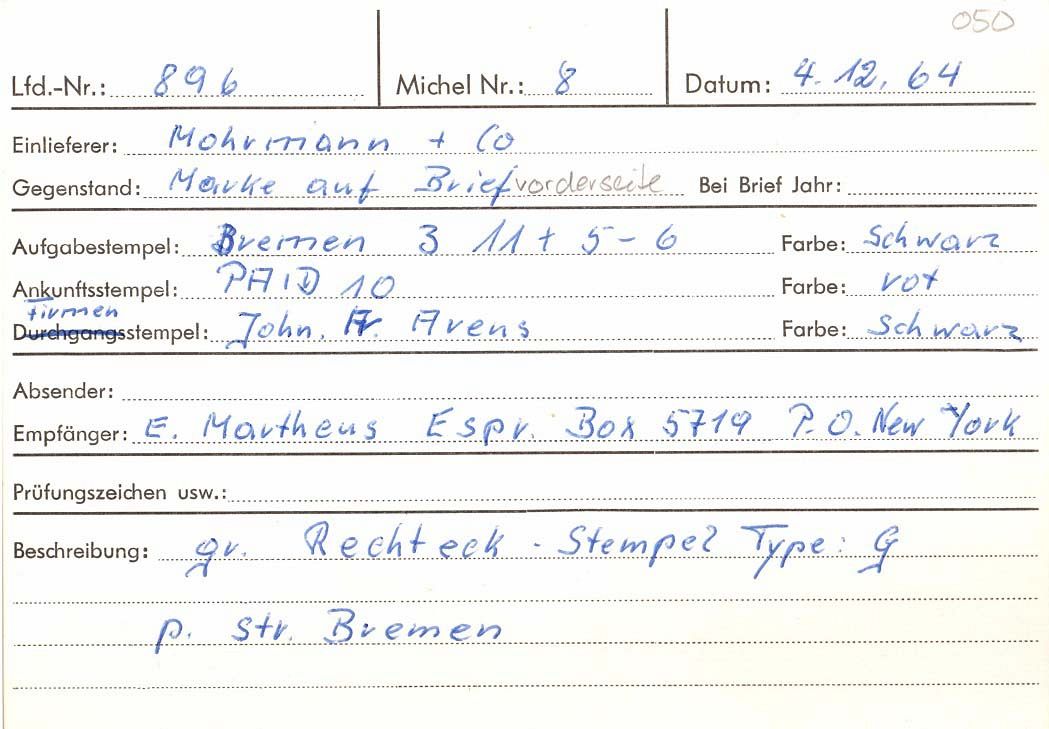 050
Lfd.-Nr.: 896 Michel Nr.: 8 Datum: 4.12.64
Einlieferer: Mohrmann + Co
Gegenstand: Marke auf Briefvorderseite Bei Brief Jahr:
Aufgabestempel: Bremen 3 11 + 5-6 Farbe: Schwarz
Ankunftsstempel: PAID 10 Farbe: rot
Firmen
Durchgangsstempel: John. Fr. Arens Farbe: Schwarz
Absender:
Empfänger: E. Martheus Espr. Box 5719 P.O. New York
Prüfungszeichen usw.:
Beschreibung: gr. Rechteck-Stempel Type: G
p. str. Bremen